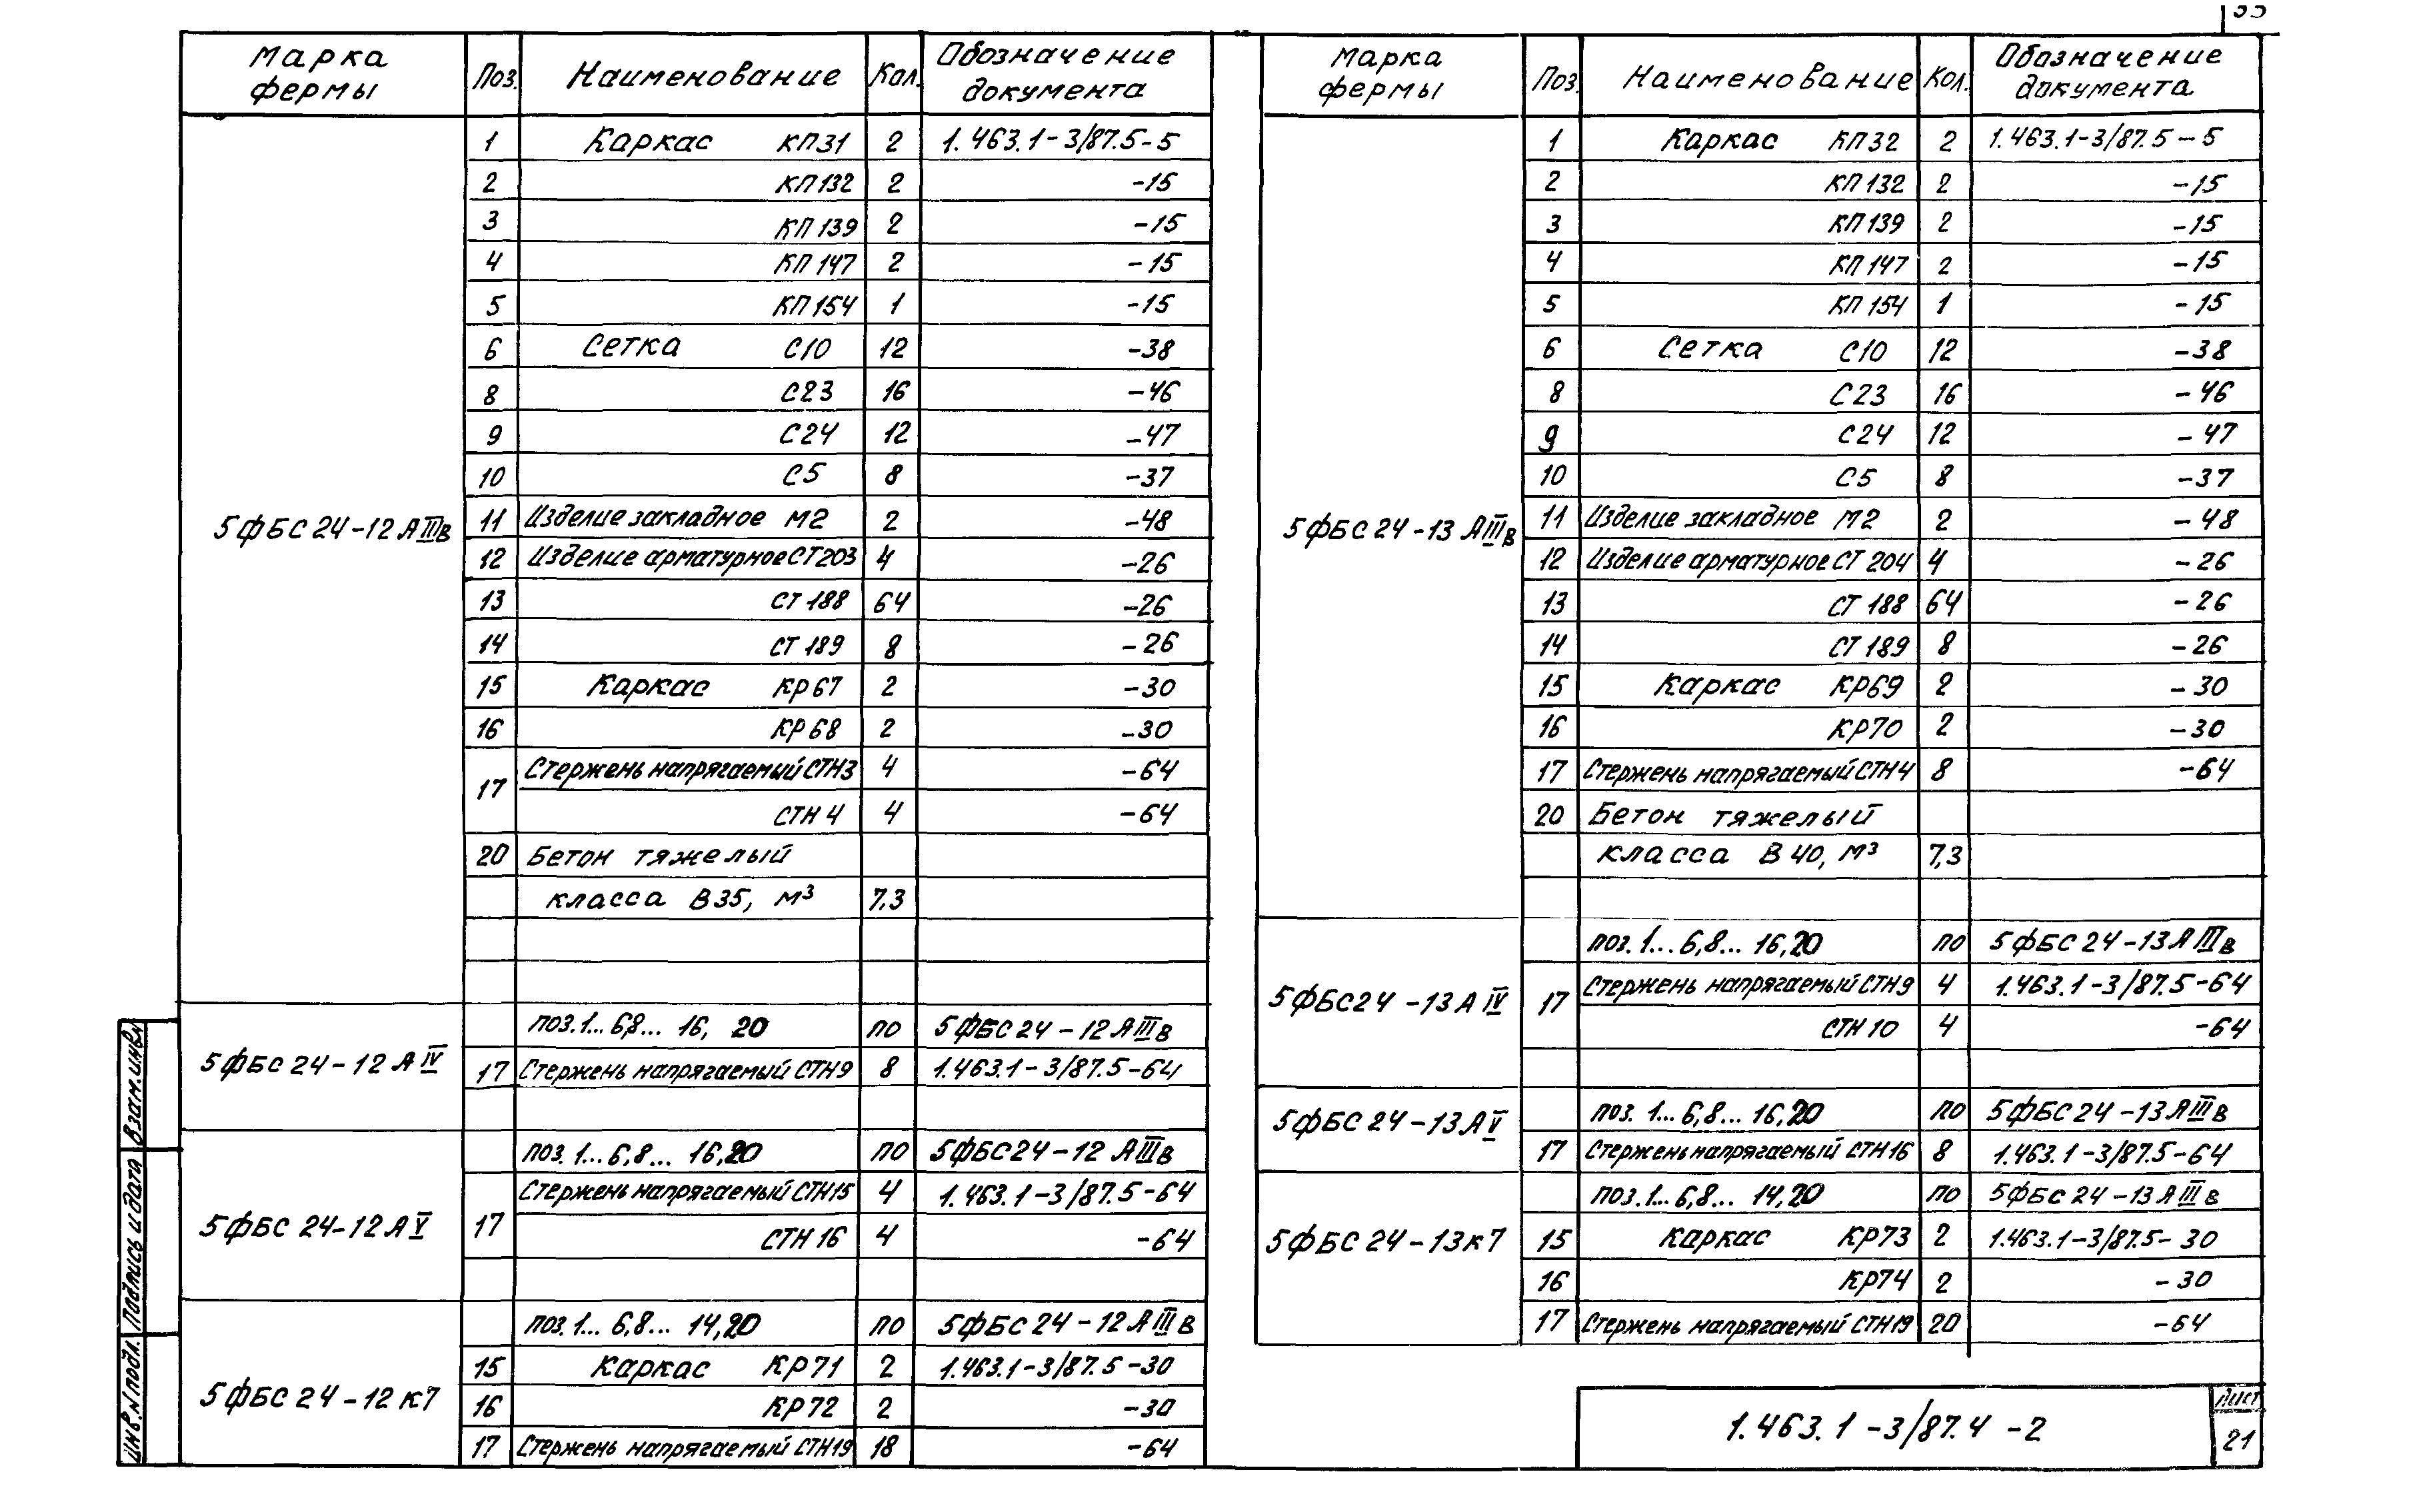 Марка фермы | Поз. | Наименование | Кол. | Обозначение документа
5ФБС 24-12 АIIIв | 1 | Каркас КП31 | 2 | 1.463.1-3/87.5-5
2 | КП132 | 2 | -15
3 | КП139 | 2 | -15
4 | КП147 | 2 | -15
5 | КП154 | 1 | -15
6 | Сетка С10 | 12 | -38
8 | С23 | 16 | -46
9 | С24 | 12 | -47
10 | С5 | 8 | -37
11 | Изделие закладное М2 | 2 | -48
12 | Изделие арматурное СТ203 | 4 | -26
13 | СТ 188 | 64 | -26
14 | СТ 189 | 8 | -26
15 | Каркас КР67 | 2 | -30
16 | КР68 | 2 | -30
17 | Стержень напрягаемый СТН3 | 4 | -64
СТН 4 | 4 | -64
20 | Бетон тяжелый
класса В35, м³ | 7.3
5ФБС 24-12 АIV | поз. 1... 6,8... 16, 20 | по | 5ФБС 24-12 АIIIв
17 | Стержень напрягаемый СТН9 | 8 | 1.463.1-3/87.5-64
5ФБС 24-12 АV | поз. 1... 6,8... 16,20 | по | 5ФБС24-12 АIIIв
17 | Стержень напрягаемый СТН15 | 4 | 1.463.1-3/87.5-64
СТН 16 | 4 | -64
5ФБС 24-12 К7 | поз. 1... 6,8... 14,20 | по | 5ФБС 24-12 АIIIв
15 | Каркас КР71 | 2 | 1.463.1-3/87.5-30
16 | КР72 | 2 | -30
17 | Стержень напрягаемый СТН19 | 18 | -64
Марка фермы | Поз. | Наименование | Кол. | Обозначение документа
5ФБС 24-13 АIIIв | 1 | Каркас КП32 | 2 | 1.463.1-3/87.5-5
2 | КП132 | 2 | -15
3 | КП139 | 2 | -15
4 | КП147 | 2 | -15
5 | КП154 | 1 | -15
6 | Сетка С10 | 12 | -38
8 | С23 | 16 | -46
9 | С24 | 12 | -47
10 | С5 | 8 | -37
11 | Изделие закладное М2 | 2 | -48
12 | Изделие арматурное СТ 204 | 4 | -26
13 | СТ 188 | 64 | -26
14 | СТ 189 | 8 | -26
15 | Каркас КР69 | 2 | -30
16 | КР70 | 2 | -30
17 | Стержень напрягаемый СТН4 | 8 | -64
20 | Бетон тяжелый
класса В40, м³ | 7,3
5ФБС24-13 АIV | поз. 1... 6,8... 16,20 | по | 5ФБС 24-13 АIIIв
17 | Стержень напрягаемый СТН9 | 4 | 1.463.1-3/87.5-64
СТН 10 | 4 | -64
5ФБС 24-13 АV | поз. 1... 6,8... 16,20 | по | 5ФБС 24-13 АIIIв
17 | Стержень напрягаемый СТН16 | 8 | 1.463.1-3/87.5-64
5ФБС 24-13К7 | поз. 1... 6,8... 14,20 | по | 5ФБС 24-13 АIIIв
15 | Каркас КР73 | 2 | 1.463.1-3/87.5-30
16 | КР74 | 2 | -30
17 | Стержень напрягаемый СТН19 | 20 | -64
1.463.1-3/87.4-2
Лист
21
Инв.N подл.
Подпись и дата
Взам.инв.N